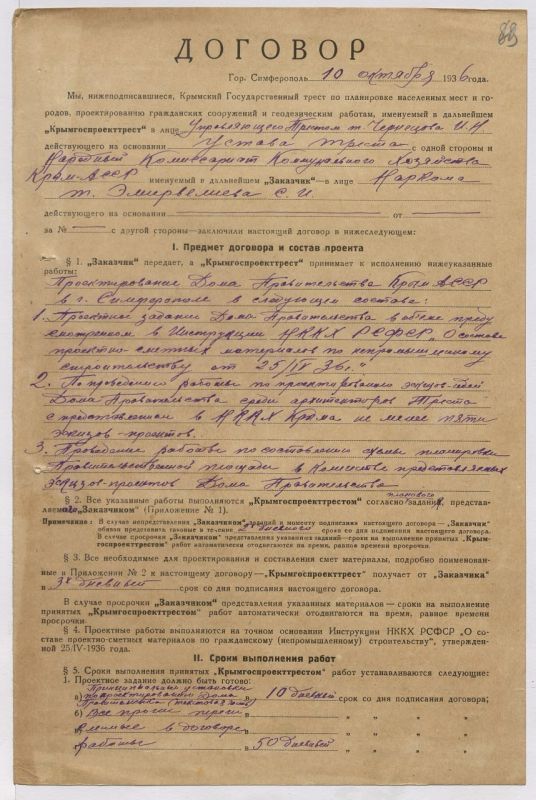 88
ДОГОВОР
Гор. Симферополь 10 октября 1936 года.
Мы, нижеподписавшиеся, Крымский Государственный трест по планировке населенных мест и го-
родов, проектированию гражданских сооружений и геодезическим работам, именуемый в дальнейшем
„Крымгоспроекттрест" в лице Управляющего Трестом т. Чернецова И.И.
действующего на основании Устава треста с одной стороны и
Народный Комиссариат Коммунального Хозяйства
Крым АССР именуемый в дальнейшем „Заказчик"—в лице Наркома
т. Эмирвелиева С. И.
действующего на основании — от —
за № — с другой стороны—заключили настоящий договор в нижеследующем:
I. Предмет договора и состав проекта
§ 1. „Заказчик" передает, а „Крымгоспроекттрест" принимает к исполнению нижеуказанные
работы:
Проектирование Дома Правительства Крым АССР
в г. Симферополе в следующем составе:
1. Проектное задание Дома Правительства в об'еме преду
смотренном в Инструкции НККХ РСФСР „О составе
проектно-сметных материалов по непромышленному
строительству от 25/IV 36г."
2. По проведению работы по проектированию эскизов-идей
Дома Правительства среди архитекторов Треста
с представлением в НККХ Крыма не менее пяти
эскизов-проектов.
3. Проведение работы по составлению схемы планировки
Правительственной площади в количестве представляемых
эскизов-проектов Дома Правительства
§ 2. Все указанные работы выполняются „Крымгоспроекттрестом" согласно планового задания, представ-
ляемого „Заказчиком" (Приложение № 1).
Примечание: В случае непредставления „Заказчиком" заданий к моменту подписания настоящего договора—„Заказчик"
обязан представить таковые в те-ение 3х дневного срока со дня подписания настоящего договора.
В случае просрочки „Заказчиком" представления указанных заданий—сроки на выполнение принятых „Крым-
госпроекттрестом" работ автоматически отодвигаются на время, равное времени просрочки.
§ 3. Все необходимые для проектирования и составления смет материалы, подробно поименован-
ные в Приложении № 2 к настоящему договору—„Крымгоспроекттрест" получает от „Заказчика"
в 3х дневный срок со дня подписания настоящего договора.
В случае просрочки „Заказчиком" представления указанных материалов—сроки на выполнение
принятых „Крымгоспроекттрестом" работ автоматически отодвигаются на время, равное времени
просрочки.
§ 4. Проектные работы выполняются на точном основании Инструкции НККХ РСФСР „О со-
ставе проектно-сметных материалов по гражданскому (непромышленному) строительству", утвержден-
ной 25/IV-1936 года.
II. Сроки выполнения работ
§ 5. Сроки выполнения принятых „Крымгоспроекттрестом" работ устанавливаются следующие:
1. Проектное задание должно быть готово:
Принципиальные установки
а) по проектированию Дома в 10 дневный срок со дня подписания договора;
Правительства
б) Все прочие переч " " "
в) исляемые в договоре " " "
работы в 50 дневный " " "